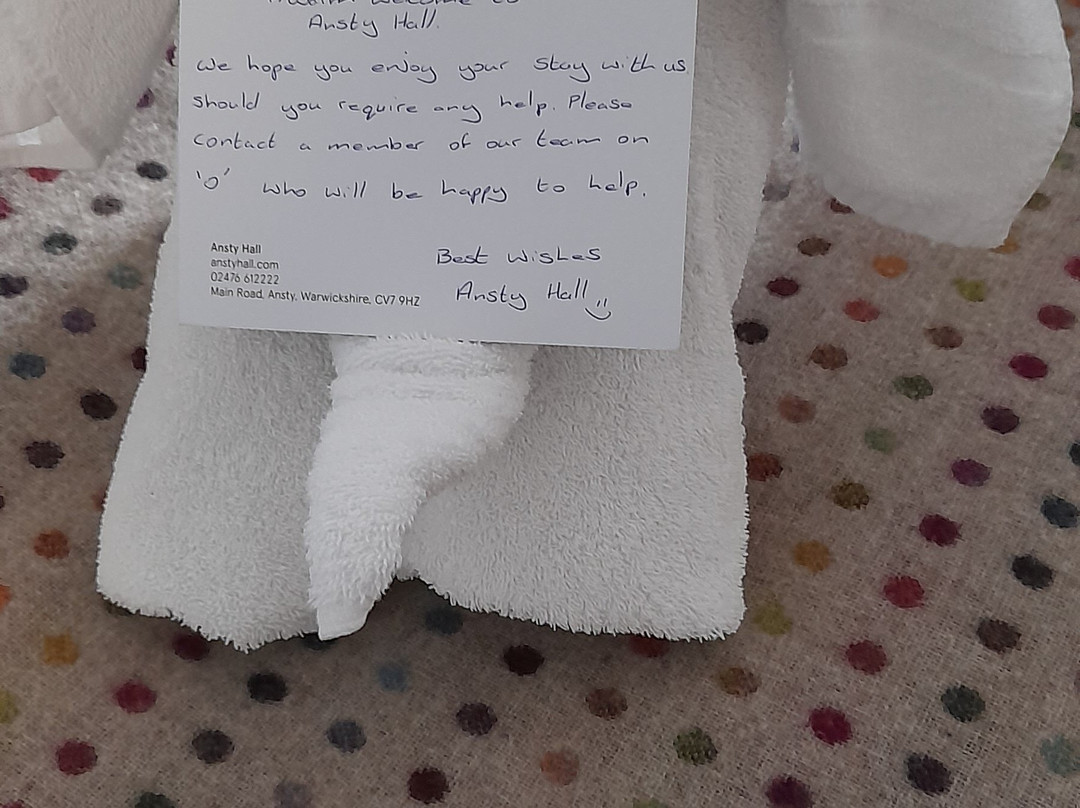 welcome to
Ansty Hall.
We hope you enjoy your stay with us.
should you require any help. Please
contact a member of our team on
'0' who will be happy to help.
Best wishes
Ansty Hall
Ansty Hall
anstyhall.com
02476 612222
Main Road, Ansty, Warwickshire, CV7 9HZ